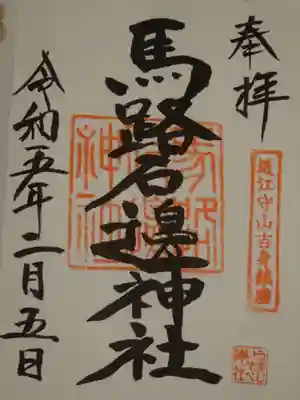 奉拝
馬路石邊神社
令和五年二月五日
近江守山吉身鎮座